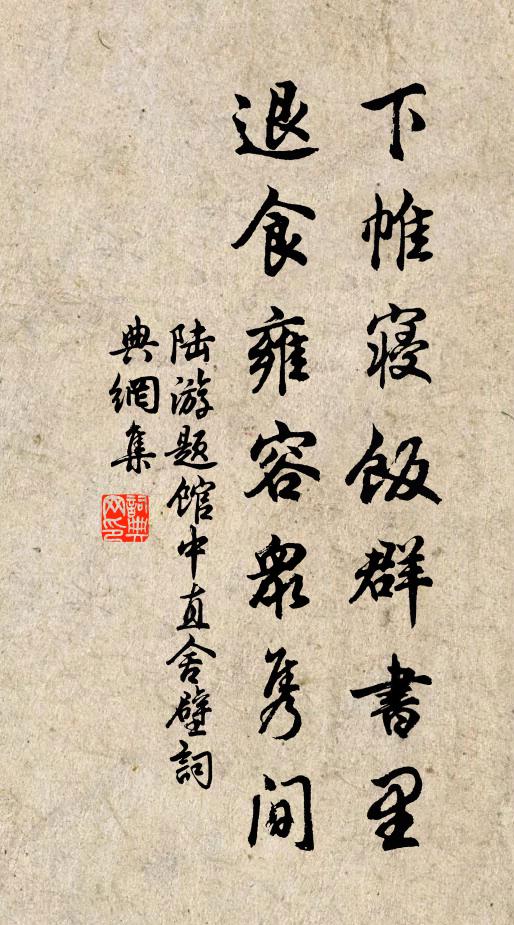 下帷寝飯群書里
退食雍容衆隽間
陸游題館中直舍壁詞
典網集
詞典网印